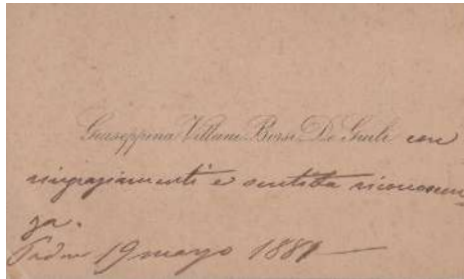 Giuseppina Villani Borsi De Giuli con
ringraziamenti e sentita riconoscen
za.
19 marzo 188